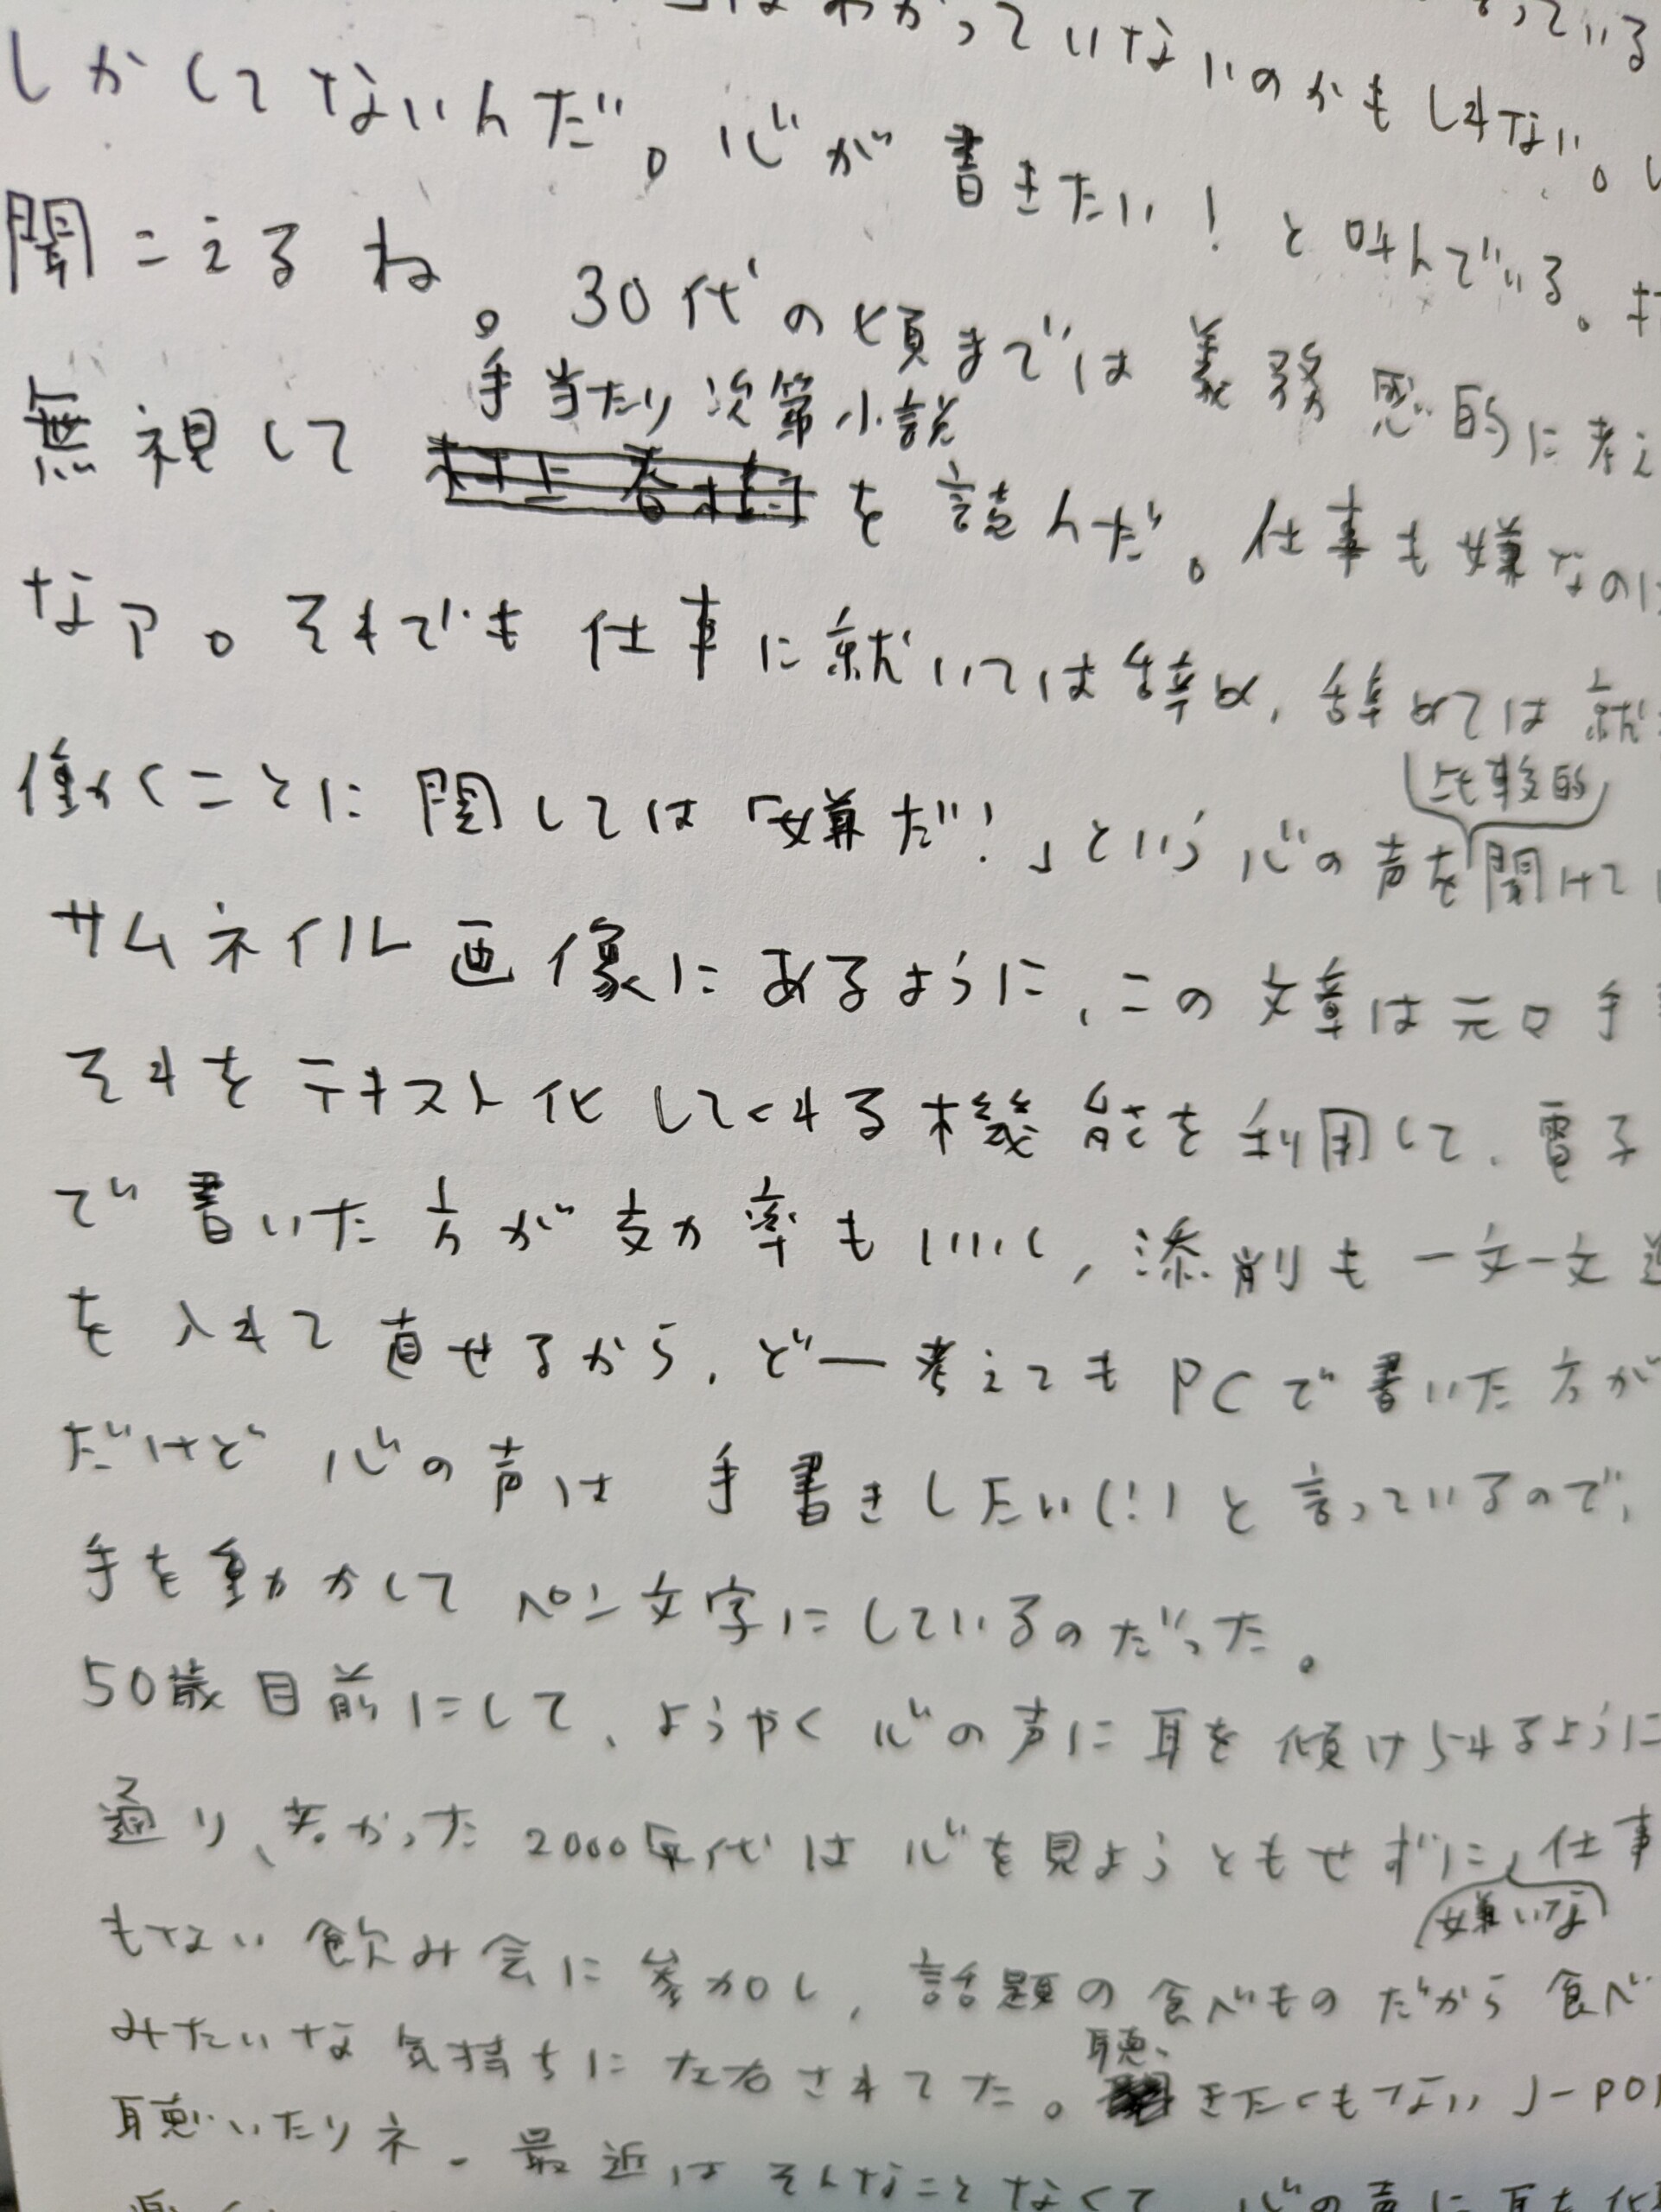 はわかっていないのかもしれない。
っている
しかしてないんだ。心が書きたい!と叫んでいる。
聞こえるね。30代の頃までは義務感的に考え
手当たり次第小説
無視して村上春樹を読んだ。仕事も嫌なのに
なア。それでも仕事に就いては辞め、辞めては就
比較的
働くことに関しては「嫌だ!」という心の声を聞けて
サムネイル画像にあるように、この文章は元々手
それをテキスト化してくれる機能を利用して、電子
で書いた方が効率もいいし、添削も一文一文
を入れて直せるから、どー考えてもPCで書いた方が
だけど心の声は手書きしたい(!)と言っているので、
手を動かしてペン文字にしているのだった。
50歳目前にして、ようやく心の声に耳を傾けられるように
通り、若かった2000年代は心を見ようともせずに、仕事
嫌いな
もない飲み会に参加し、話題の食べものだから食べ
みたいな気持ちに左右されてた。
聴
きたくもないJ-POP
聴いたりネ。最近はそんなことなくて、心の声に耳を